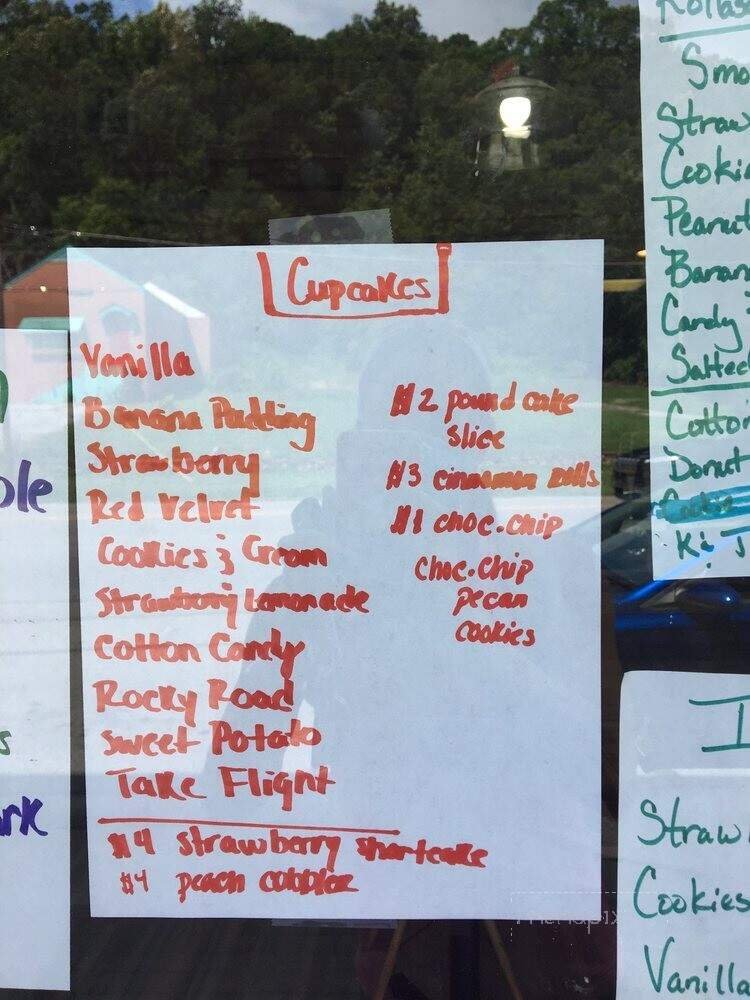 Cupcakes
Vanilla
Banana Pudding
Strawberry
Red Velvet
Cookies & Cream
Strawberry Lemonade
Cotton Candy
Rocky Road
Sweet Potato
Take Flight
$4 strawberry shortcake
$4 peach cobbler
$2 pound cake
slice
$3 cinnamon rolls
$1 choc.chip
choc.chip
pecan
cookies
Smo
Straw
Cookie
Peanut
Banan
Candy
Salted
Cotton
Donut
Straw
Cookies
Vanilla
ple
s
ark